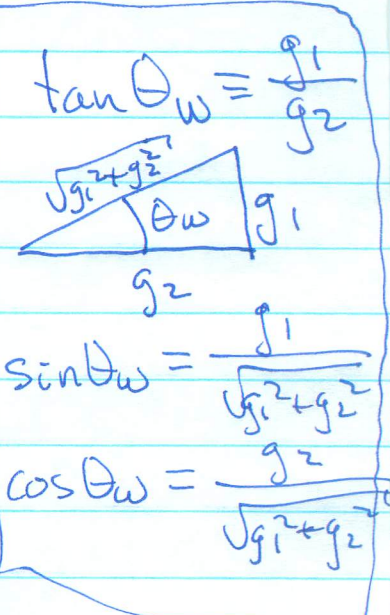 tan θw ≡ g1/g2
√g1²+g2²
θw g1
g2
sinθw = g1/√g1²+g2²
cosθw = g2/√g1²+g2²